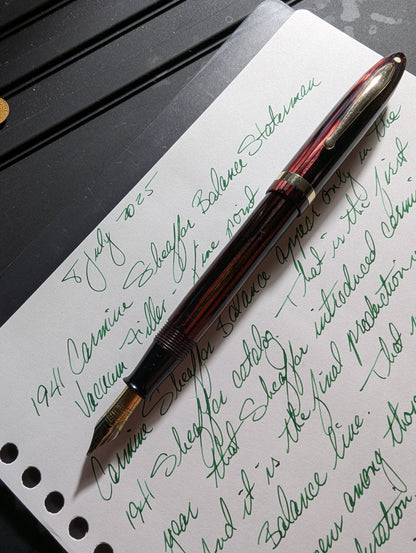 8 July 2025
1941 Carmine Sheaffer Balance Statesman
Vacuum Filler - fine point
Carmine Sheaffer Balance appear only in the
1941 Sheaffer catalog. That is the first
year that Sheaffer introduced
and it is the final production
Balance line. That
among